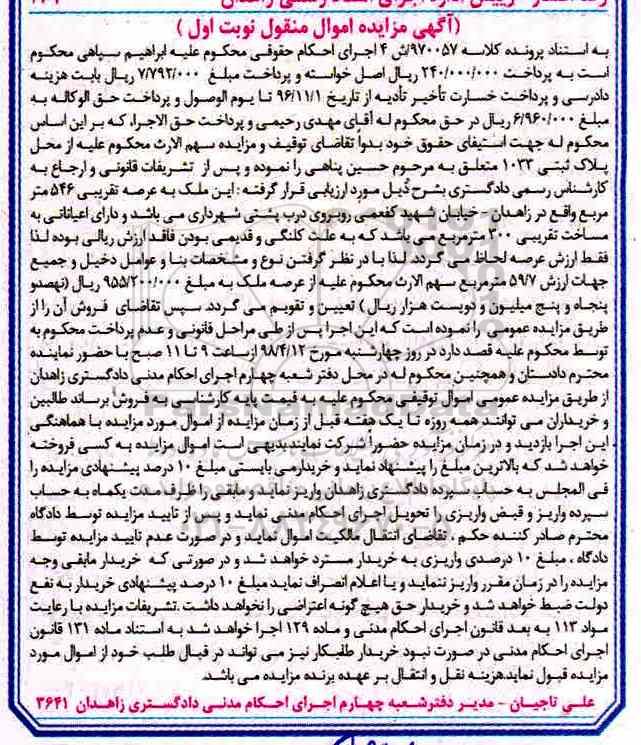 (آگهی مزایده اموال منقول نوبت اول)
به استناد پرونده کلاسه ۹۷۰۰۵۷/ش ۴ اجرای احکام حقوقی محکوم علیه ابراهیم سپاهی محکوم
است به پرداخت ۲۴۰/۰۰۰/۰۰۰ ریال اصل خواسته و پرداخت مبلغ ۷/۷۹۲/۰۰۰ ریال بابت هزینه
دادرسی و پرداخت خسارت تأخیر تأدیه از تاریخ ۹۶/۱۱/۱ تا یوم الوصول و پرداخت حق الوکاله به
مبلغ ۶/۹۶۰/۰۰۰ ریال در حق محکوم له آقای مهدی رحیمی و پرداخت حق الاجرا، که بر این اساس
محکوم له جهت استیفای حقوق خود بدواً تقاضای توقیف و مزایده سهم الارث محکوم علیه از محل
پلاک ثبتی ۱۰۳۳ متعلق به مرحوم حسین پناهی را نموده و پس از تشریفات قانونی و ارجاع به
کارشناس رسمی دادگستری بشرح ذیل مورد ارزیابی قرار گرفته : این ملک به عرصه تقریبی ۵۴۶ متر
مربع واقع در زاهدان - خیابان شهید کفعمی روبروی درب پشتی شهرداری می باشد و دارای اعیاناتی به
مساحت تقریبی ۳۰۰ مترمربع می باشد که به علت کلنگی و قدیمی بودن فاقد ارزش ریالی بوده لذا
فقط ارزش عرصه لحاظ می گردد لذا با در نظر گرفتن نوع و مشخصات بنا و عوامل دخیل و جمیع
جهات ارزش ۵۹/۷ مترمربع سهم الارث محکوم علیه از عرصه ملک به مبلغ ۹۵۵/۲۰۰/۰۰۰ ریال (نهصدو
پنجاه و پنج میلیون و دویست هزار ریال) تعیین و تقویم می گردد. سپس تقاضای فروش آن را از
طریق مزایده عمومی را نموده است که این اجرا پس از طی مراحل قانونی و عدم پرداخت محکوم به
توسط محکوم علیه قصد دارد در روز چهارشنبه مورخ ۹۸/۴/۱۲ از ساعت ۹ تا ۱۱ صبح با حضور نماینده
محترم دادستان و همچنین محکوم له در محل دفتر شعبه چهارم اجرای احکام مدنی دادگستری زاهدان
از طریق مزایده عمومی اموال توقیفی محکوم علیه به قیمت پایه کارشناسی به فروش برساند طالبین
و خریداران می توانند همه روزه تا یک هفته قبل از زمان مزایده از اموال مورد مزایده با هماهنگی
این اجرا بازدید و در زمان مزایده حضوراً شرکت نمایند بدیهی است اموال مزایده به کسی فروخته
خواهد شد که بالاترین مبلغ را پیشنهاد نماید و خریدار می بایستی مبلغ ۱۰ درصد پیشنهادی مزایده را
فی المجلس به حساب سپرده دادگستری زاهدان واریز نماید و مابقی را ظرف مدت یکماه به حساب
سپرده واریز و قبض واریزی را تحویل اجرای احکام مدنی نماید و پس از تایید مزایده توسط دادگاه
محترم صادر کننده حکم ، تقاضای انتقال مالکیت اموال نماید و در صورت عدم تایید مزایده توسط
دادگاه ، مبلغ ۱۰ درصدی واریزی به خریدار مسترد خواهد شد و در صورتی که خریدار مابقی وجه
مزایده را در زمان مقرر واریز ننماید و یا اعلام انصراف نماید مبلغ ۱۰ درصد پیشنهادی خریدار به نفع
دولت ضبط خواهد شد و خریدار حق هیچ گونه اعتراضی را نخواهد داشت .تشریفات مزایده با رعایت
مواد ۱۱۳ به بعد قانون اجرای احکام مدنی و ماده ۱۲۹ اجرا خواهد شد به استناد ماده ۱۳۱ قانون
اجرای احکام مدنی در صورت نبود خریدار طلبکار نیز می تواند در قبال طلب خود از اموال مورد
مزایده قبول نماید.هزینه نقل و انتقال بر عهده برنده مزایده می باشد.
علی تاجیان - مدیر دفترشعبه چهارم اجرای احکام مدنی دادگستری زاهدان ۳۶۴۱